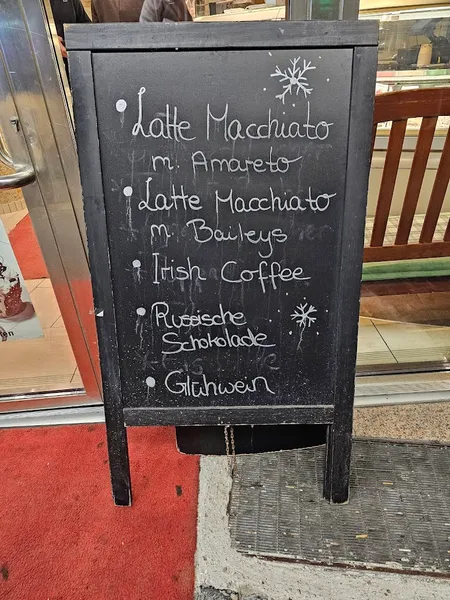 Latte Macchiato
m. Amareto
Latte Macchiato
m. Baileys
Irish Coffee
Russische
Schokolade
Glühwein